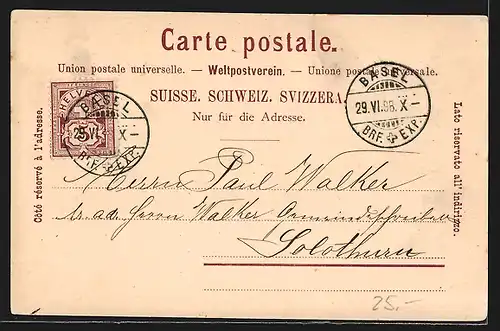 Carte postale.
Union postale universelle. — Weltpostverein. — Unione postale universale.
SUISSE. SCHWEIZ. SVIZZERA.
Nur für die Adresse.
Côté réservé à l'adresse.
Lato riservato all' indirizzo.
HELVETIA
5
BASEL
29.VI. X–
BRF. EXP.
BASEL
29.VI.98. X–
BRF. EXP.
Herrn Paul Walker
Herrn Walker Gemeindschreiber
Solothurn
25.-